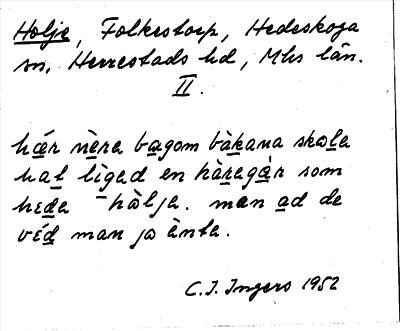 Holje, Folkestorp, Hedeskoga
sn, Herrestads hd, Mhs län.
II.
hær nèra bagom bàkana skola
hat lìgad en hàragàr som
heda hàlja. men ad de
véd man jo ènte.
C.I. Ingers 1952